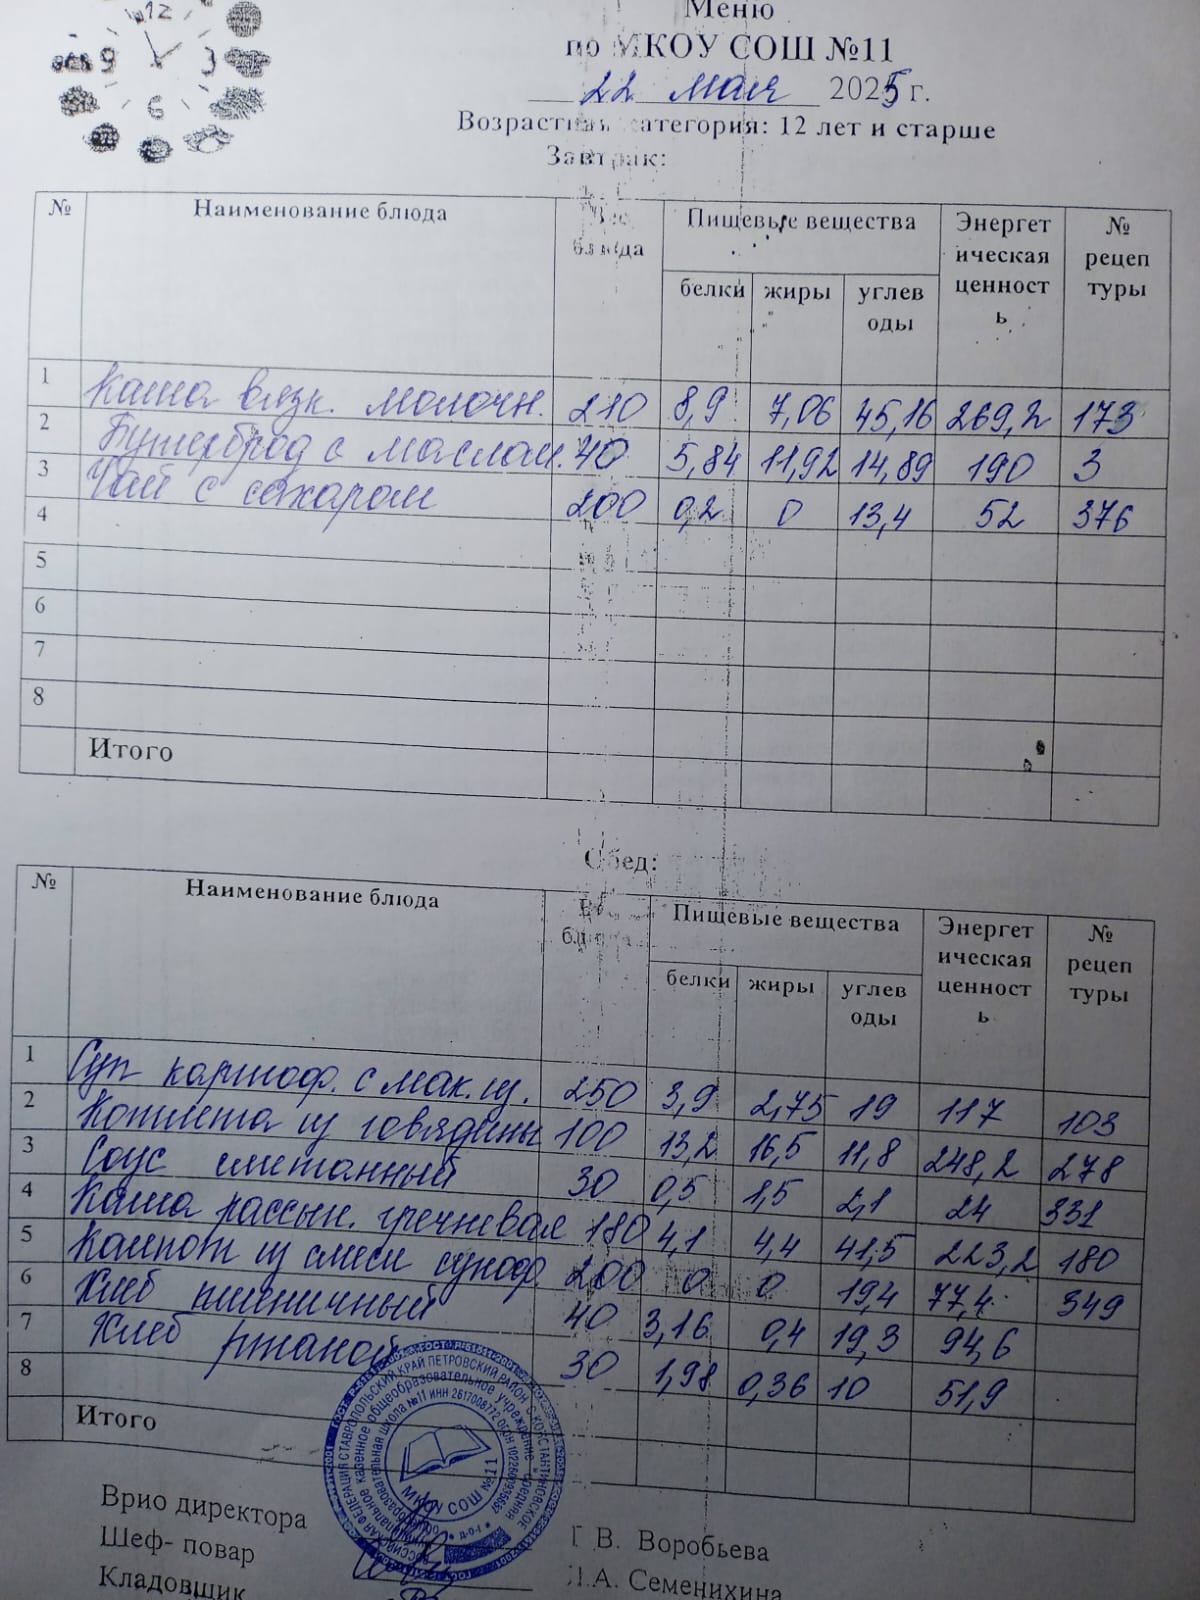 12
3
6
9
Меню
по МКОУ СОШ №11
22 мая 2025 г.
Возрастная категория: 12 лет и старше
Завтрак:
№ Наименование блюда Вес блюда Пищевые вещества Энергет ическая ценност ь № рецеп туры
белки жиры углев оды
1 Каша вязк. молочн. 210 8,9 7,06 45,16 269,2 173
2 Бутерброд с маслом. 40 5,84 11,92 14,89 190 3
3 Чай с сахаром 200 0,2 0 13,4 52 376
4
5
6
7
8
Итого
Обед:
№ Наименование блюда Вес блюда Пищевые вещества Энергет ическая ценност ь № рецеп туры
белки жиры углев оды
1 Суп картоф. с мак. из. 250 3,9 2,75 19 117 103
2 Котлета из говядины 100 13,2 16,5 11,8 248,2 278
3 Соус сметанный 30 0,5 1,5 2,1 24 331
4 Каша рассып. гречневая 180 4,1 4,4 41,5 223,2 180
5 Компот из смеси сухоф. 200 0 0 19,4 77,4 349
6 Хлеб пшеничный 40 3,16 0,4 19,3 94,6
7 Хлеб ржаной 30 1,98 0,36 10 51,9
8
Итого
МКОУ СОШ №11
Врио директора Г. В. Воробьева
Шеф- повар Л.А. Семенихина
Кладовщик